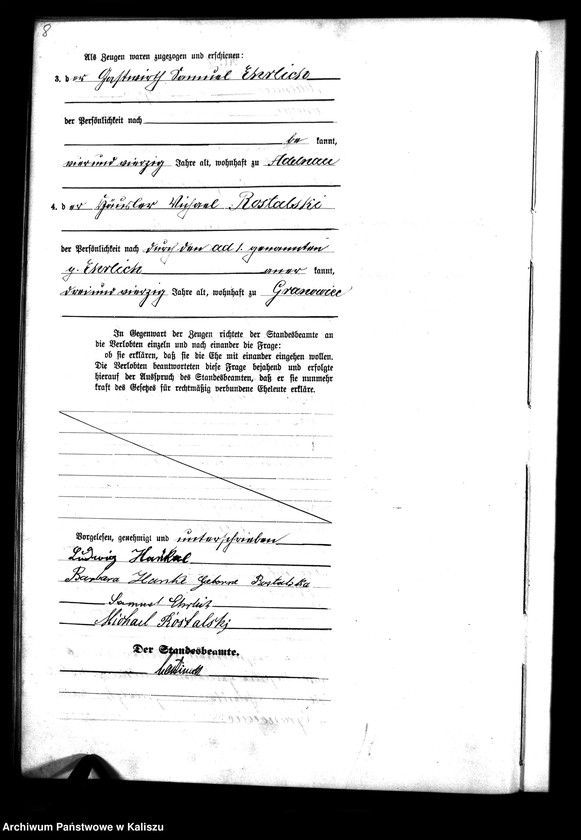 8
Als Zeugen waren zugezogen und erschienen:
3. der Gastwirth Samuel Ehrlich
der Persönlichkeit nach
be kannt,
vier und vierzig Jahre alt, wohnhaft zu Adelnau
4. der Häusler Michael Rostalski
der Persönlichkeit nach durch den ad 1. genannten
p. Ehrlich aner kannt,
drei und vierzig Jahre alt, wohnhaft zu Granowiec
In Gegenwart der Zeugen richtete der Standesbeamte an
die Verlobten einzeln und nach einander die Frage:
ob sie erklären, daß sie die Ehe mit einander eingehen wollen.
Die Verlobten beantworteten diese Frage bejahend und erfolgte
hierauf der Ausspruch des Standesbeamten, daß er sie nunmehr
kraft des Gesetzes für rechtmäßig verbundene Eheleute erkläre.
Vorgelesen, genehmigt und unterschrieben
Ludwig
Barbara Hanke geborne Rostalska
Samuel Ehrlich
Michael Rostalski
Der Standesbeamte.
Archiwum Państwowe w Kaliszu